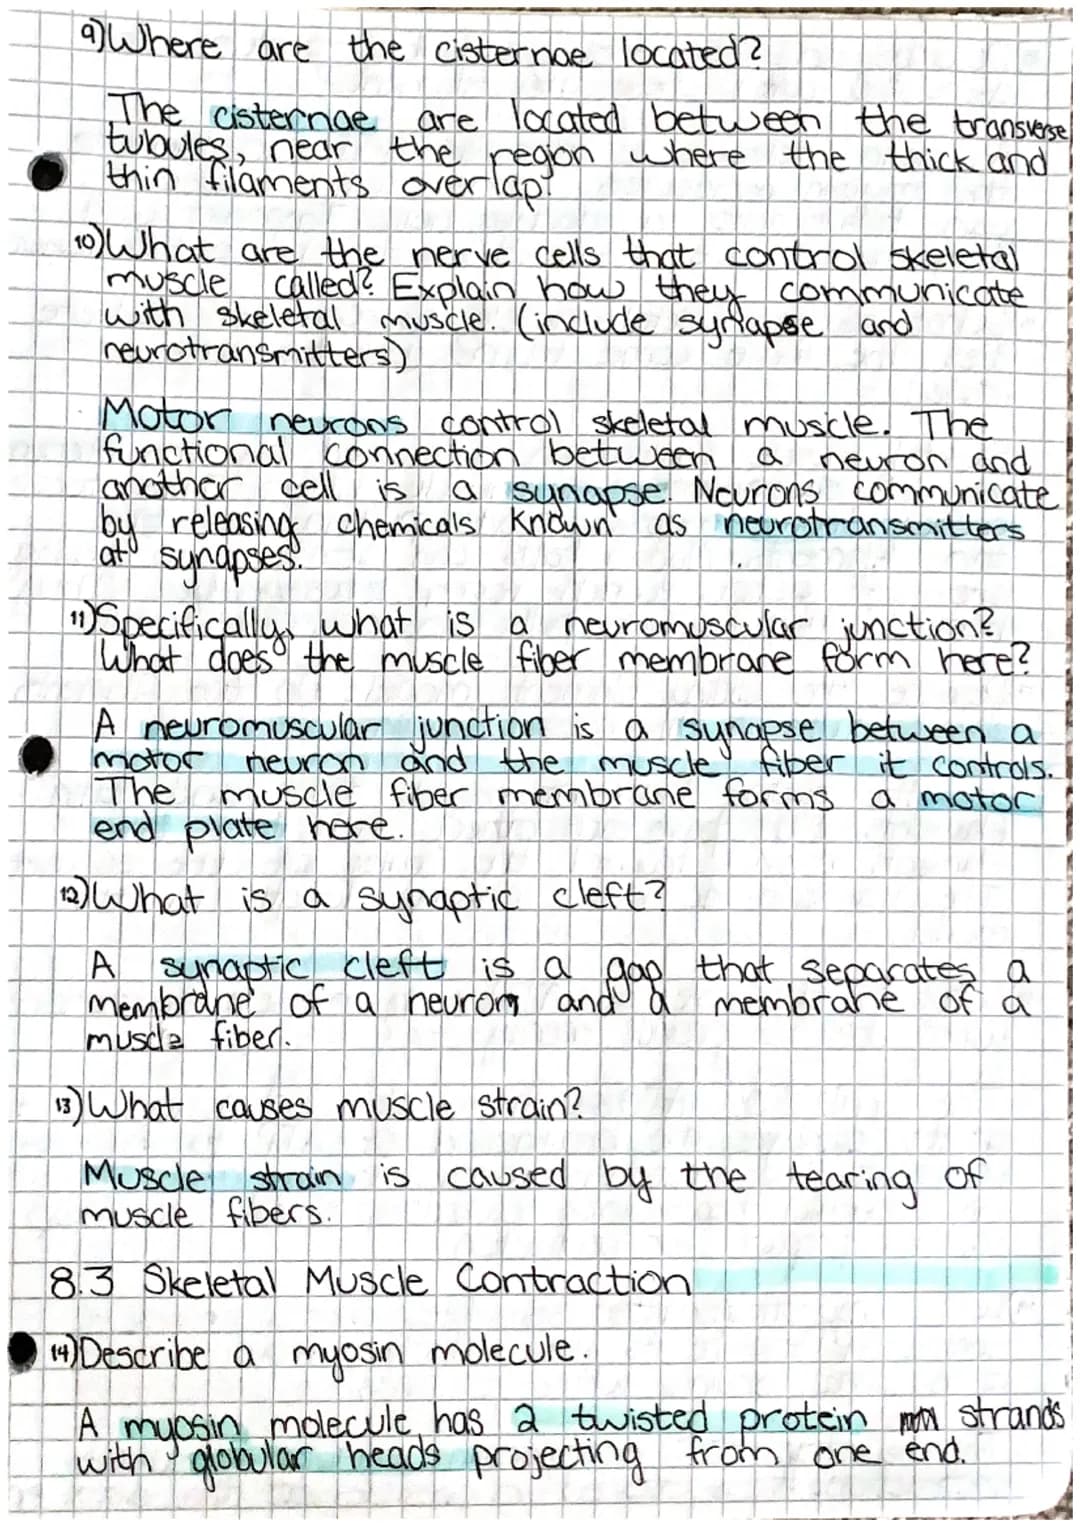 9) Where are the cisternae located?
The cisternae are located between the transverse
tubules, near the region where the thick and
thin filaments overlap.
10) What are the nerve cells that control skeletal
muscle called? Explain how they communicate
with skeletal muscle. (include synapse and
neurotransmitters)
Motor neurons control skeletal muscle. The
functional connection between a neuron and
another cell is a synapse. Neurons communicate
by releasing chemicals known as neurotransmitters
at synapses.
11) Specifically, what is a neuromuscular junction?
What does the muscle fiber membrane form here?
A neuromuscular junction is a synapse between a
motor neuron and the muscle fiber it controls.
The muscle fiber membrane forms a motor
end plate here.
12) What is a synaptic cleft?
A synaptic cleft is a gap that separates a
membrane of a neuron and a membrane of a
muscle fiber.
13) What causes muscle strain?
Muscle strain is caused by the tearing of
muscle fibers.
8.3 Skeletal Muscle Contraction
14) Describe a myosin molecule.
A myosin molecule has 2 twisted protein strands
with globular heads projecting from one end.